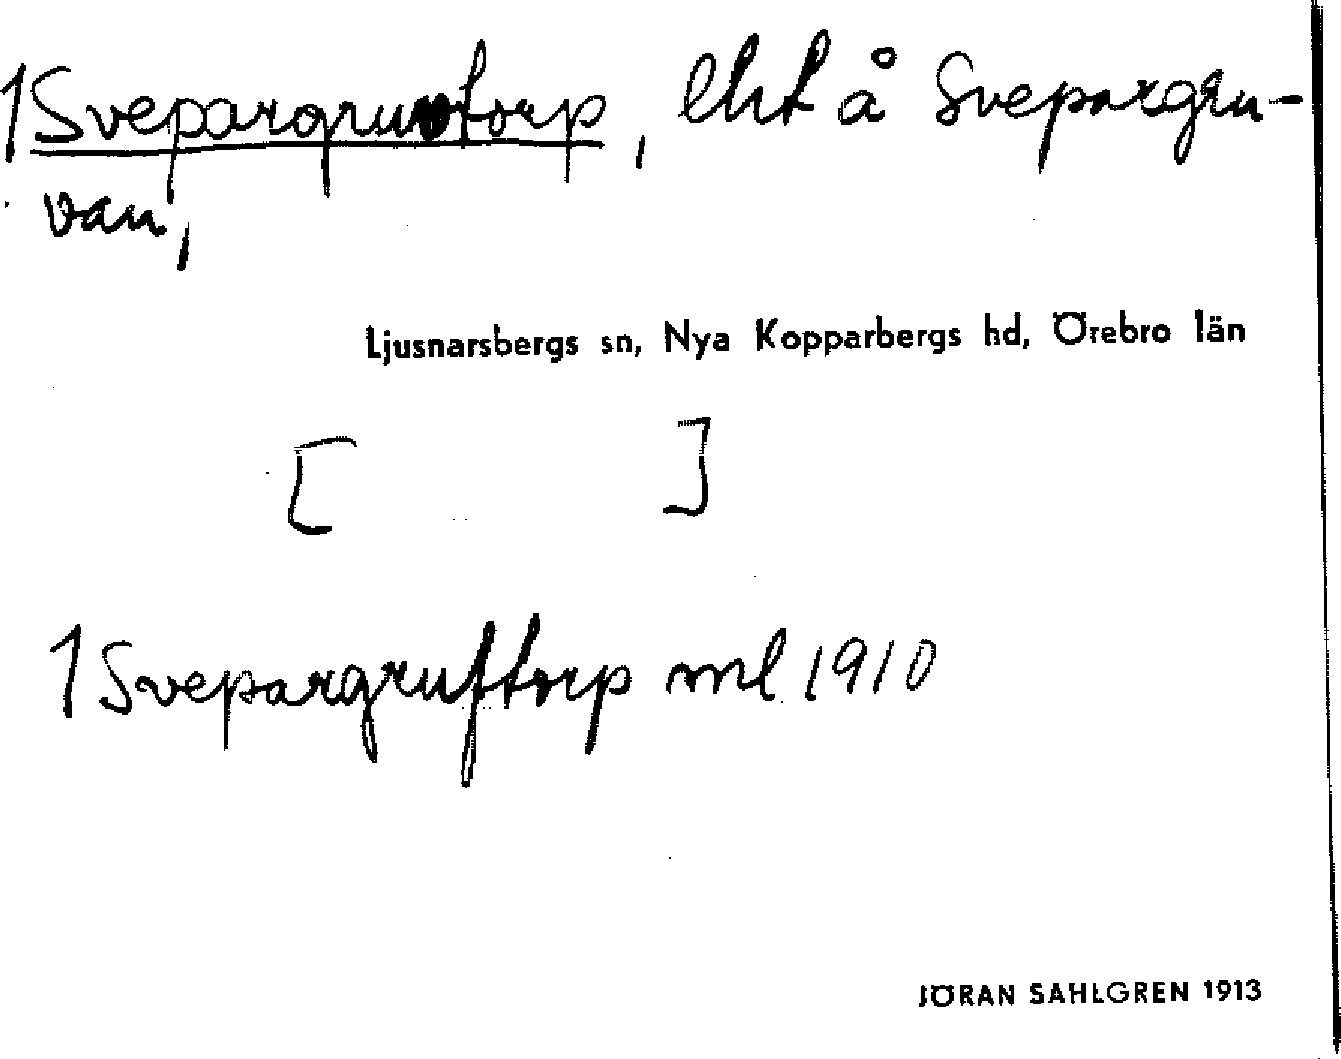 1 Svepargruvtorp, lht å Svepargru-
van,
Ljusnarsbergs sn, Nya Kopparbergs hd, Örebro län
[ ]
1 Svepargruftorp ml 1910
JÖRAN SAHLGREN 1913